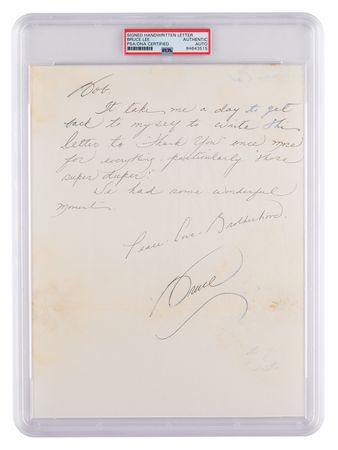 SIGNED HANDWRITTEN LETTER
BRUCE LEE AUTHENTIC
PSA/DNA CERTIFIED AUTO
84643515
PSA
Bob
It take me a day to get
back to myself to write this
letter to "Thank You" once more
for everything, particularly "those
super duper".
We had some wonderful
moments.
Peace · Love · Brotherhood,
Bruce